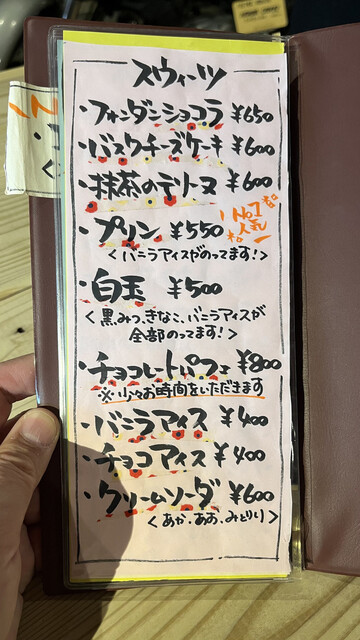 スウィーツ
・フォンダンショコラ ¥650
・バスクチーズケーキ ¥600
・抹茶のテリーヌ ¥600
・プリン ¥550 No.1人気
<バニラアイスがのってます!>
・白玉 ¥500
<黒みつ、きなこ、バニラアイスが
全部のってます!>
・チョコレートパフェ ¥800
※少々お時間をいただきます
・バニラアイス ¥400
・チョコアイス ¥400
・クリームソーダ ¥600
<あか・あお・みどり>